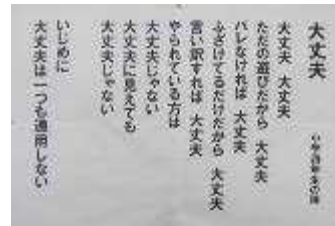 大丈夫
大丈夫 大丈夫
ただの遊びだから 大丈夫
バレなければ 大丈夫
ふざけてるだけだから 大丈夫
言い訳すれば 大丈夫
やられている方は
大丈夫じゃない
大丈夫に見えても
大丈夫じゃない
いじめに
大丈夫は一つも通用しない